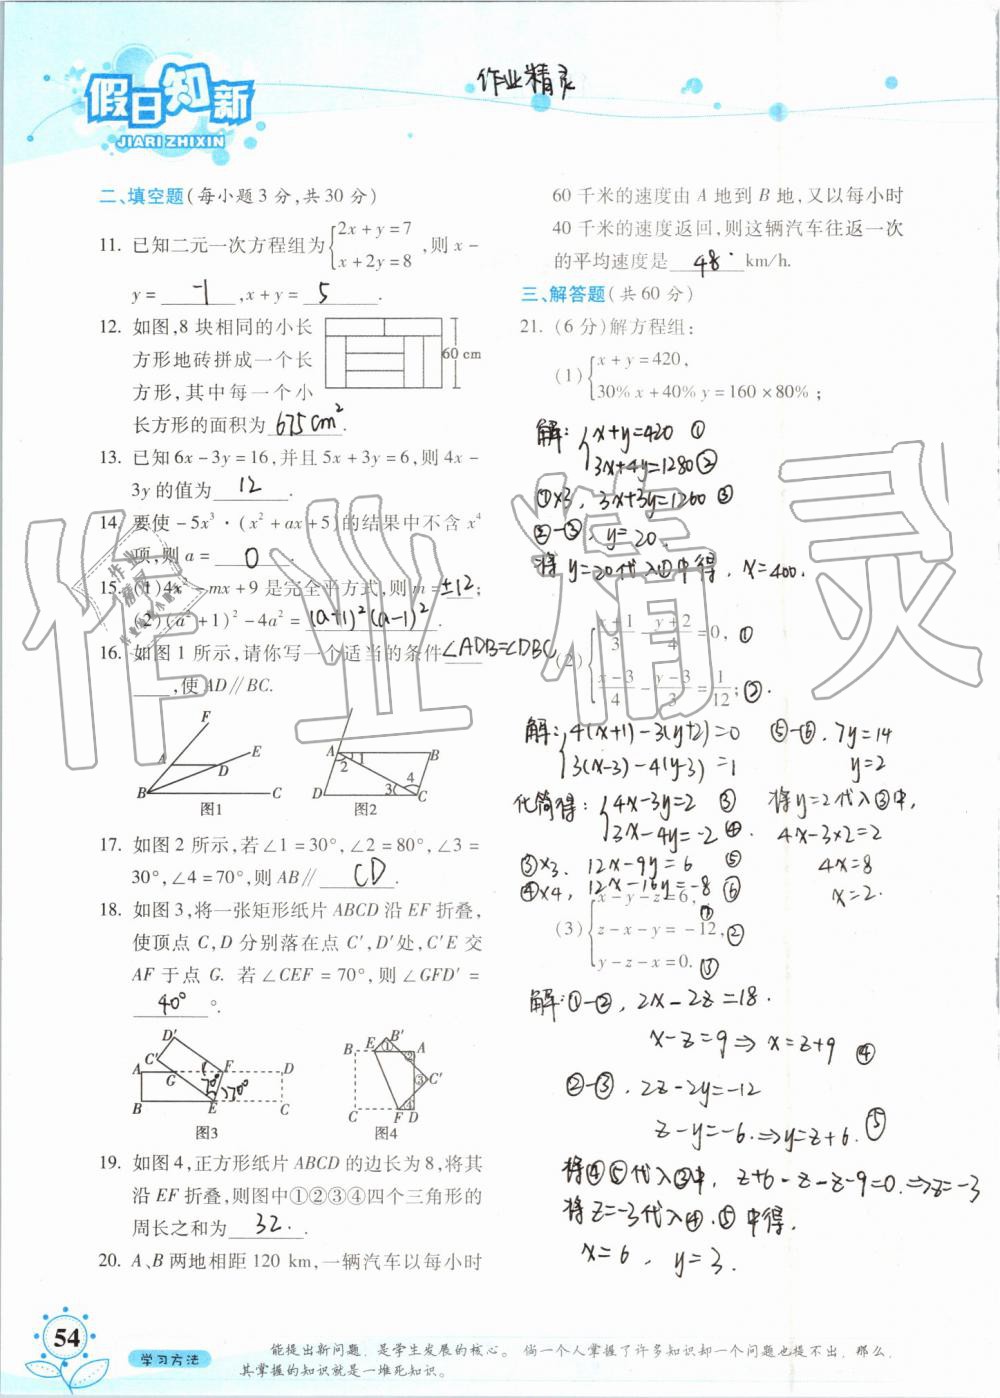 作业精灵
假日知新
JIARI ZHIXIN
二、填空题(每小题3分,共30分)
11. 已知二元一次方程组为{2x+y=7
x+2y=8,则x-
y= -1 ,x+y= 5 .
12. 如图,8块相同的小长
方形地砖拼成一个长
方形,其中每一个小
长方形的面积为 675cm² .
60 cm
13. 已知6x-3y=16,并且5x+3y=6,则4x-
3y的值为 12 .
14. 要使-5x³·(x²+ax+5)的结果中不含x⁴
项,则a= 0 .
15. (1)4x²-mx+9是完全平方式,则m=±12;
(2)(a²+1)²-4a²= (a+1)²(a-1)² .
16. 如图1所示,请你写一个适当的条件∠ADB=∠DBC
,使AD∥BC.
F
A
D
E
B
C
图1
A
B
D
C
2
1
3
4
图2
17. 如图2所示,若∠1=30°,∠2=80°,∠3=
30°,∠4=70°,则AB∥ CD .
18. 如图3,将一张矩形纸片ABCD沿EF折叠,
使顶点C,D分别落在点C′,D′处,C′E交
AF于点G. 若∠CEF=70°,则∠GFD′=
40° °.
D′
C′
A
G
F
D
B
E
C
70°
图3
B
E
B′
A
C′
C
F
D
①
②
③
④
图4
19. 如图4,正方形纸片ABCD的边长为8,将其
沿EF折叠,则图中①②③④四个三角形的
周长之和为 32. .
20. A、B两地相距120 km,一辆汽车以每小时
60千米的速度由A地到B地,又以每小时
40千米的速度返回,则这辆汽车往返一次
的平均速度是 48. km/h.
三、解答题(共60分)
21. (6分)解方程组:
(1){x+y=420,
30%x+40%y=160×80%;
解:{x+y=420 ①
3x+4y=1280 ②
①×3, 3x+3y=1260 ③
②-③, y=20.
将y=20代入①中得, x=400.
(2){(x+1)/3-(y+2)/4=0, ①
(x-3)/4-(y-3)/3=1/12; ②.
解:{4(x+1)-3(y+2)=0
3(x-3)-4(y-3)=1
化简得:{4x-3y=2 ③
3x-4y=-2 ④.
③×3, 12x-9y=6 ⑤
④×4, 12x-16y=-8 ⑥
⑤-⑥, 7y=14
y=2
将y=2代入③中,
4x-3×2=2
4x=8
x=2.
(3){x-y-z=6, ①
z-x-y=-12, ②
y-z-x=0. ③
解:①-②, 2x-2z=18.
x-z=9⇒x=z+9 ④
②-③, 2z-2y=-12
z-y=-6.⇒y=z+6. ⑤
将④⑤代入③中, z+6-z-z-9=0.⇒z=-3
将z=-3代入④.⑤中得.
x=6, y=3.
54
学习方法
能提出新问题,是学生发展的核心。倘一个人掌握了许多知识却一个问题也提不出,那么,
其掌握的知识就是一堆死知识。
作业精灵